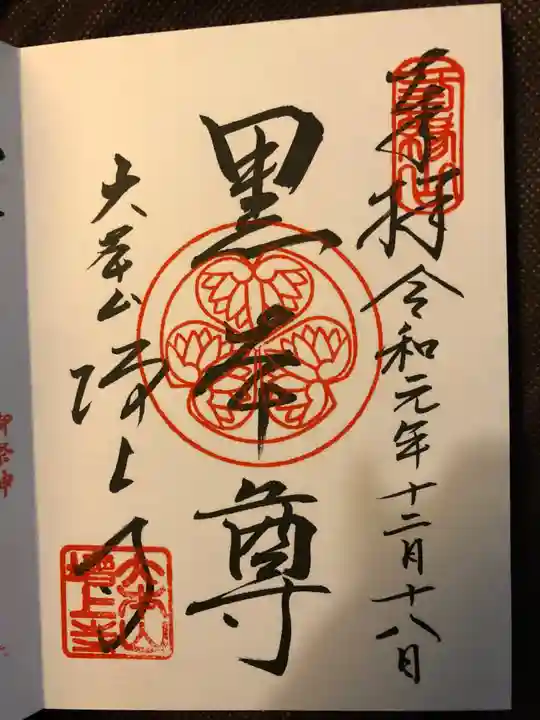 奉拝
令和元年十二月十八日
黒本尊
大本山
増上寺
大本山
増上寺